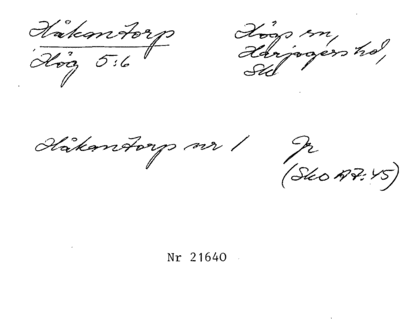 Håkantorp
Högs sn,
Hög 5:6
Harjagers hd,
Sk
Håkantorp nr 1
Jr
(Sko A7:45)
Nr 21640